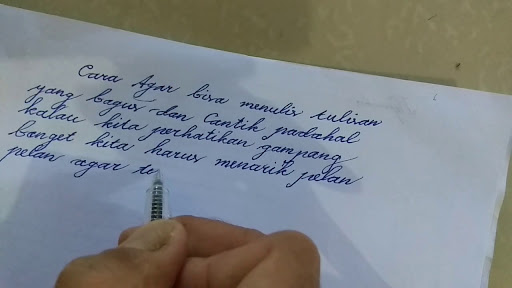 Cara Agar bisa menulis tulisan
yang bagus dan Cantik padahal
kalau kita perhatikan gampang
banget kita harus menarik pelan
pelan agar te